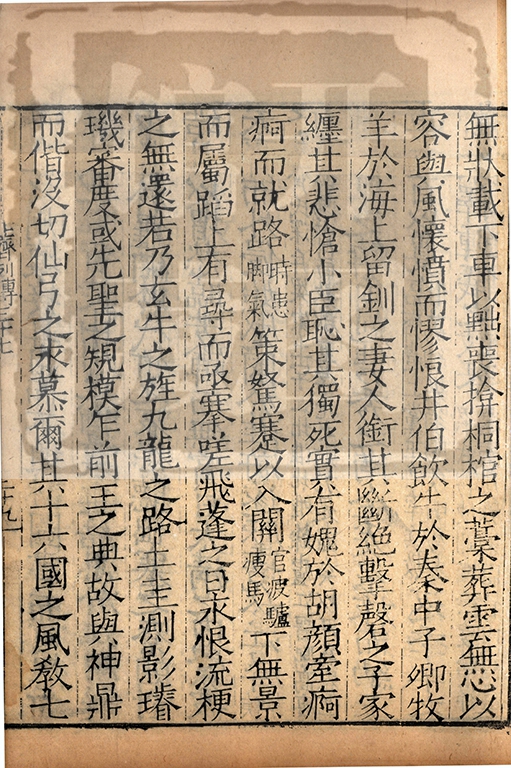 無狀載下車以黜喪揜桐棺之藁葬雲無心以
容與風懷憤而憀悢井伯飲牛於秦中子卿牧
羊於海上留釧之妻人銜其斷絕擊磬之子家
纏其悲愴小臣恥其獨死實有媿於胡顏牽痾
痾而就路時患脚氣策駑蹇以入關官疲驢瘦馬下無景
而屬蹈上有尋而亟搴嗟飛蓬之日永恨流梗
之無還若乃玄牛之旌九龍之路土圭測影璿
璣審度或先聖之規模乍前王之典故與神鼎
而偕沒切仙弓之永慕爾其十六國之風敎七